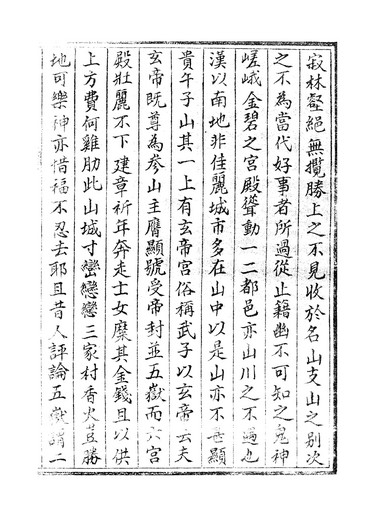 寂林壑絕無攬勝上之不見收於名山支山之別次
之不為當代好事者所過從止籍幽不可知之鬼神
嵯峨金碧之宮殿聳動一二都邑亦山川之不遇也
漢以南地非佳麗城市多在山中以是山亦不甚顯
貴午子山其一上有玄帝宮俗稱武子以玄帝云夫
玄帝既尊為參山主膺顯號受帝封並五嶽而六宮
殿壯麗不下建章祈年奔走士女糜其金錢且以供
上方費何雞肋此山城寸巒戀戀三家村香火豈勝
地可樂神亦惜福不忍去耶且昔人評論五嶽謂二